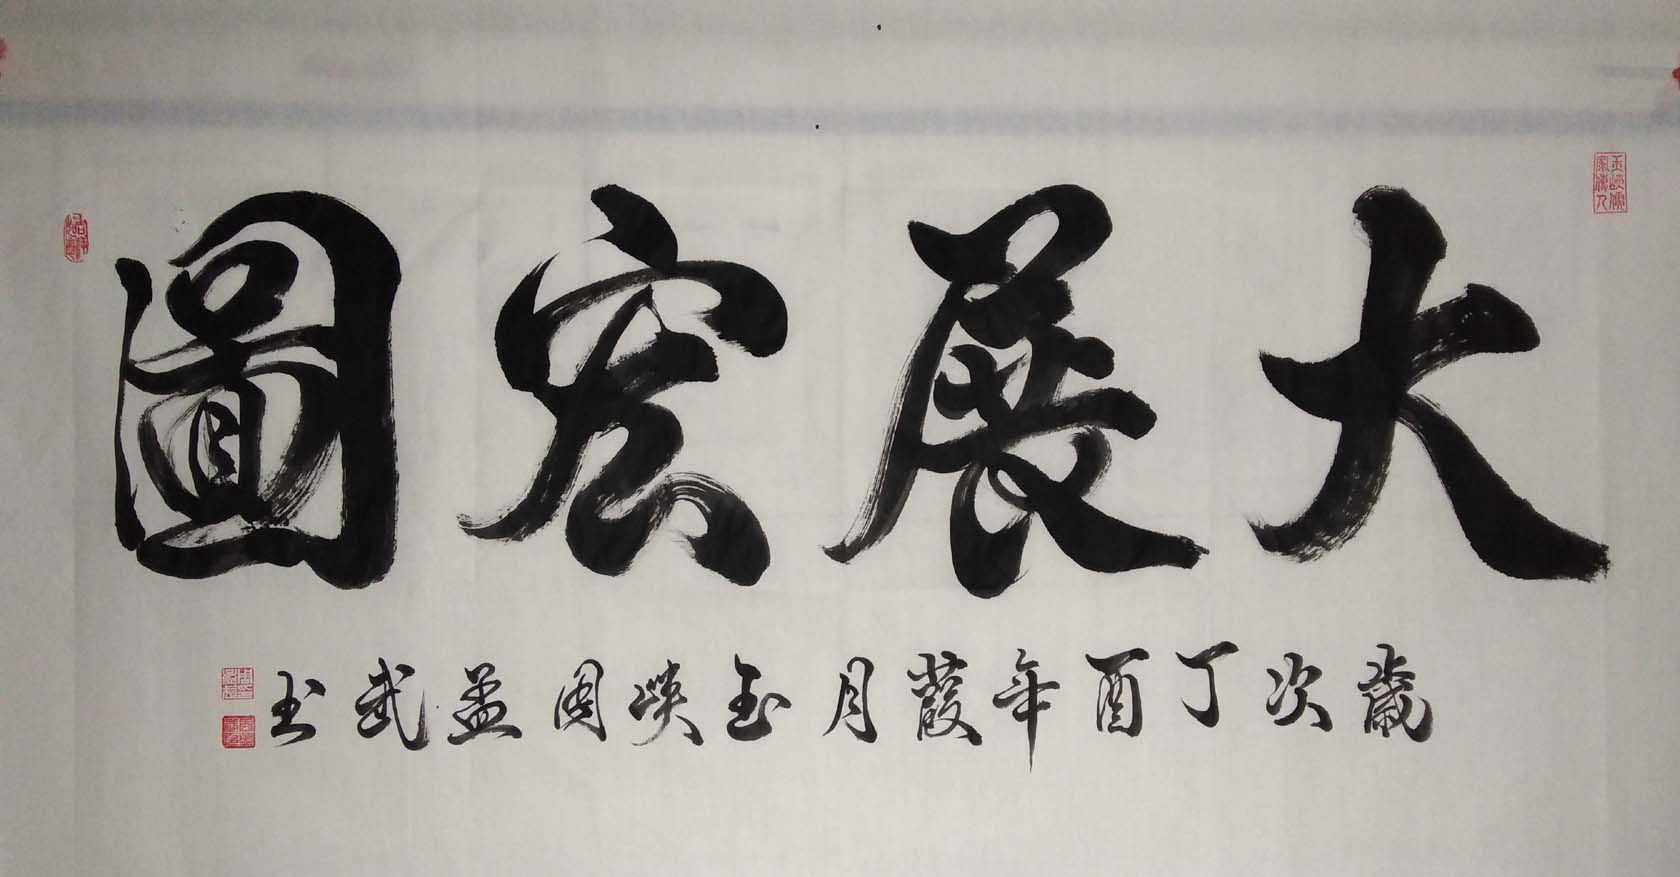 大展宏圖
歲次丁酉年葭月玉峽周益武书